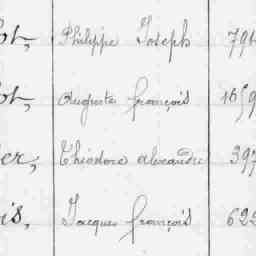 ot, Philippe Joseph 794
ot, Auguste françois 1659
er, Théodore alexandre 397
is, Jacques françois 622